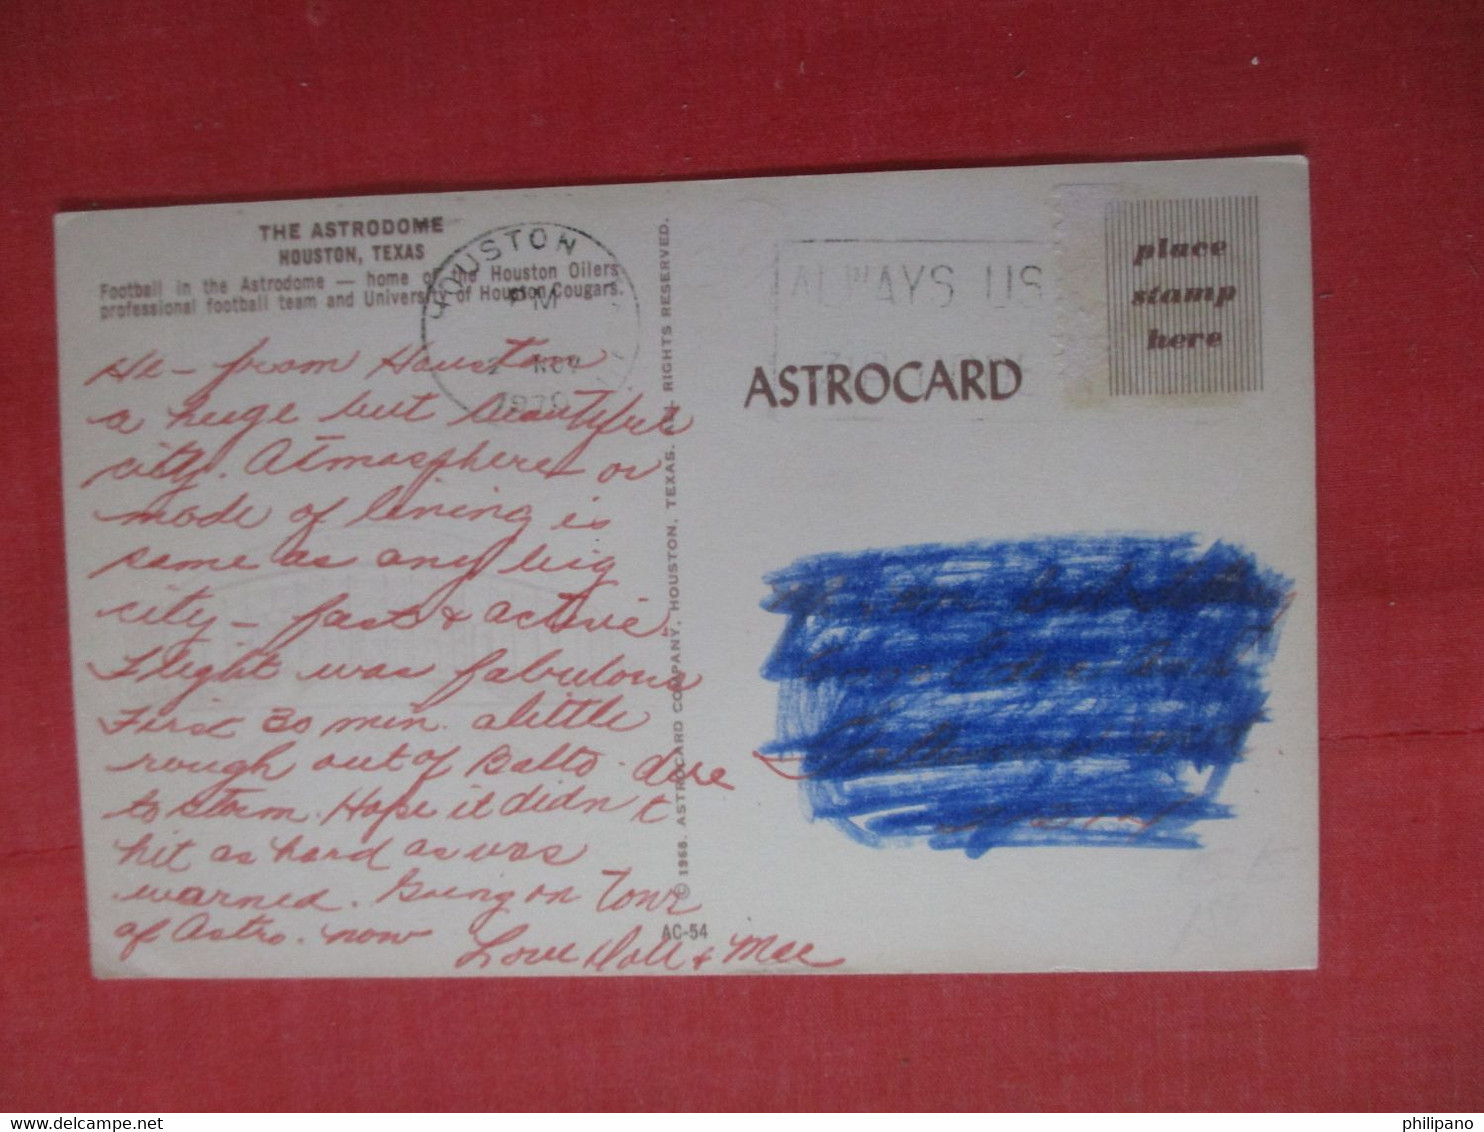 THE ASTRODOME
HOUSTON, TEXAS
Football in the Astrodome — home of the Houston Oilers
professional football team and University of Houston Cougars.
HOUSTON
PM
2 NOV
1970
ALWAYS US
ZIP
place
stamp
here
ASTROCARD
Hi - from Houston
a huge but beautiful
city. Atmosphere or
mode of lining is
same as any big
city - fast & active.
Flight was fabulous
First 30 min. a little
rough out of Balto. due
to storm. Hope it didn't
hit as hard as was
warned. Going on Tour
of Astro. now
Love Doll & Mac
© 1968. ASTROCARD COMPANY, HOUSTON, TEXAS. ALL RIGHTS RESERVED.
AC-54
philipano